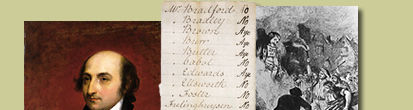 Mr. Bradford No
Bradley No
Brown Aye
Burr Aye
Butler Aye
Cabot No
Edwards Aye
Ellsworth No
Foster No
Frelinghuysen No